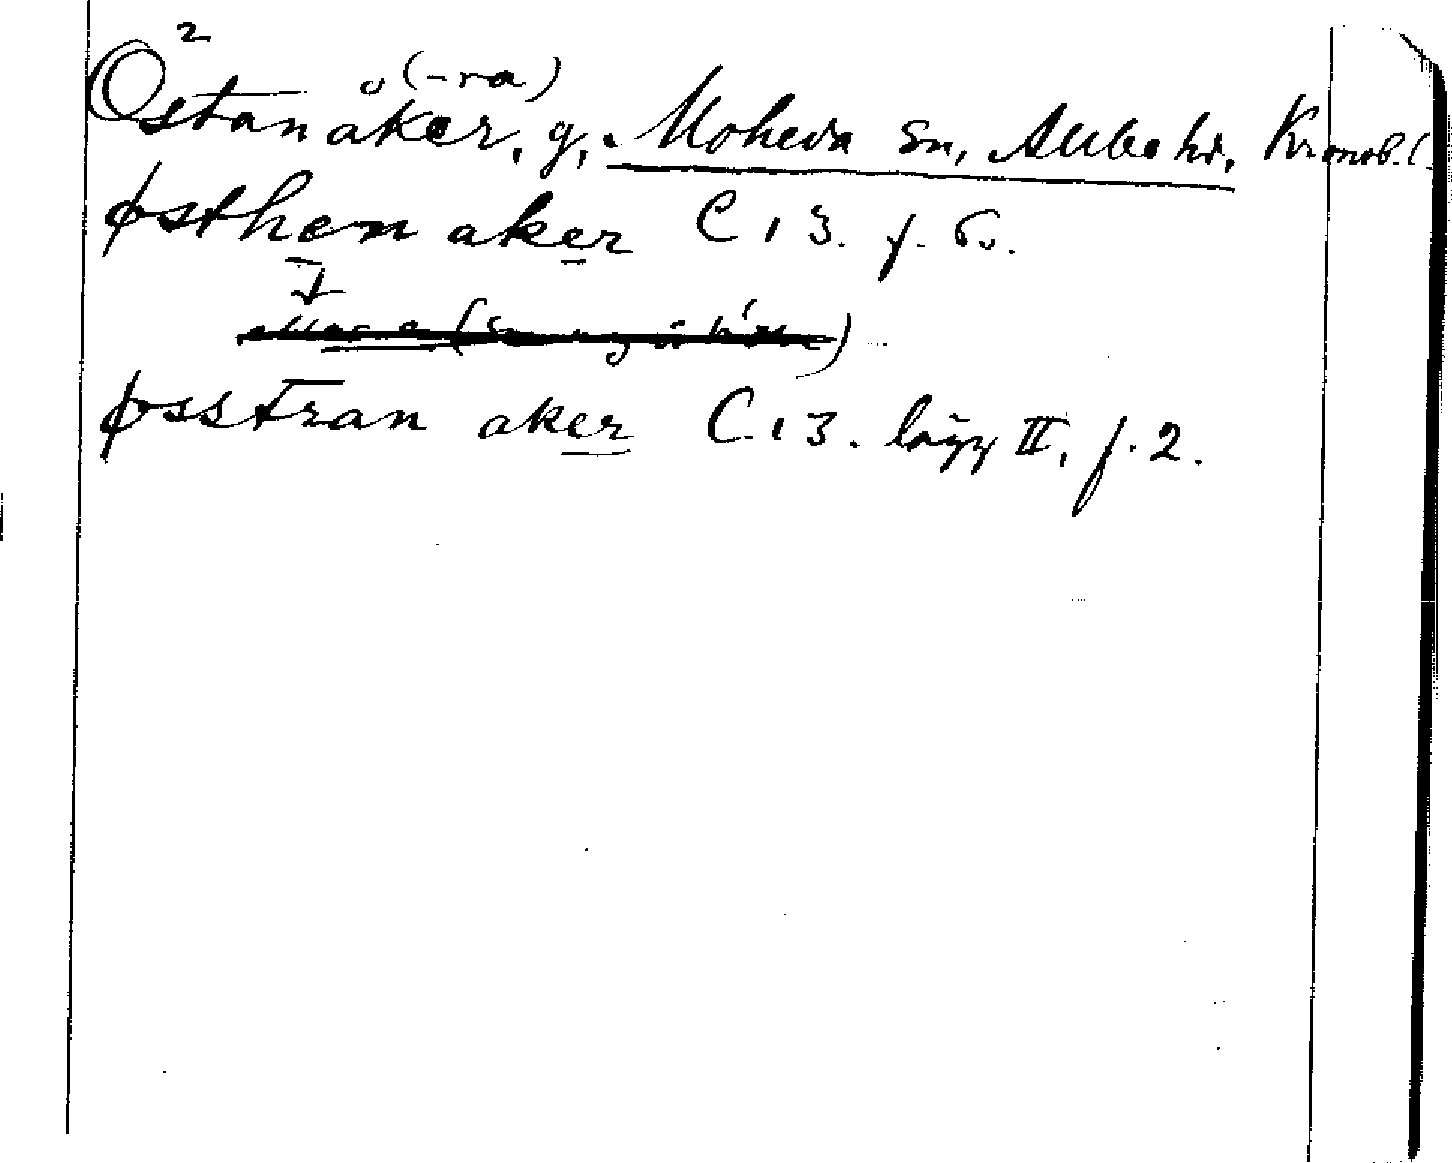 2
(-ra)
Östanåker, g, Moheda sn, Allbo hd, Kronob. l.
østhen aker C 13. f. 6v.
øsstran aker C. 13. lägg II, f. 2.